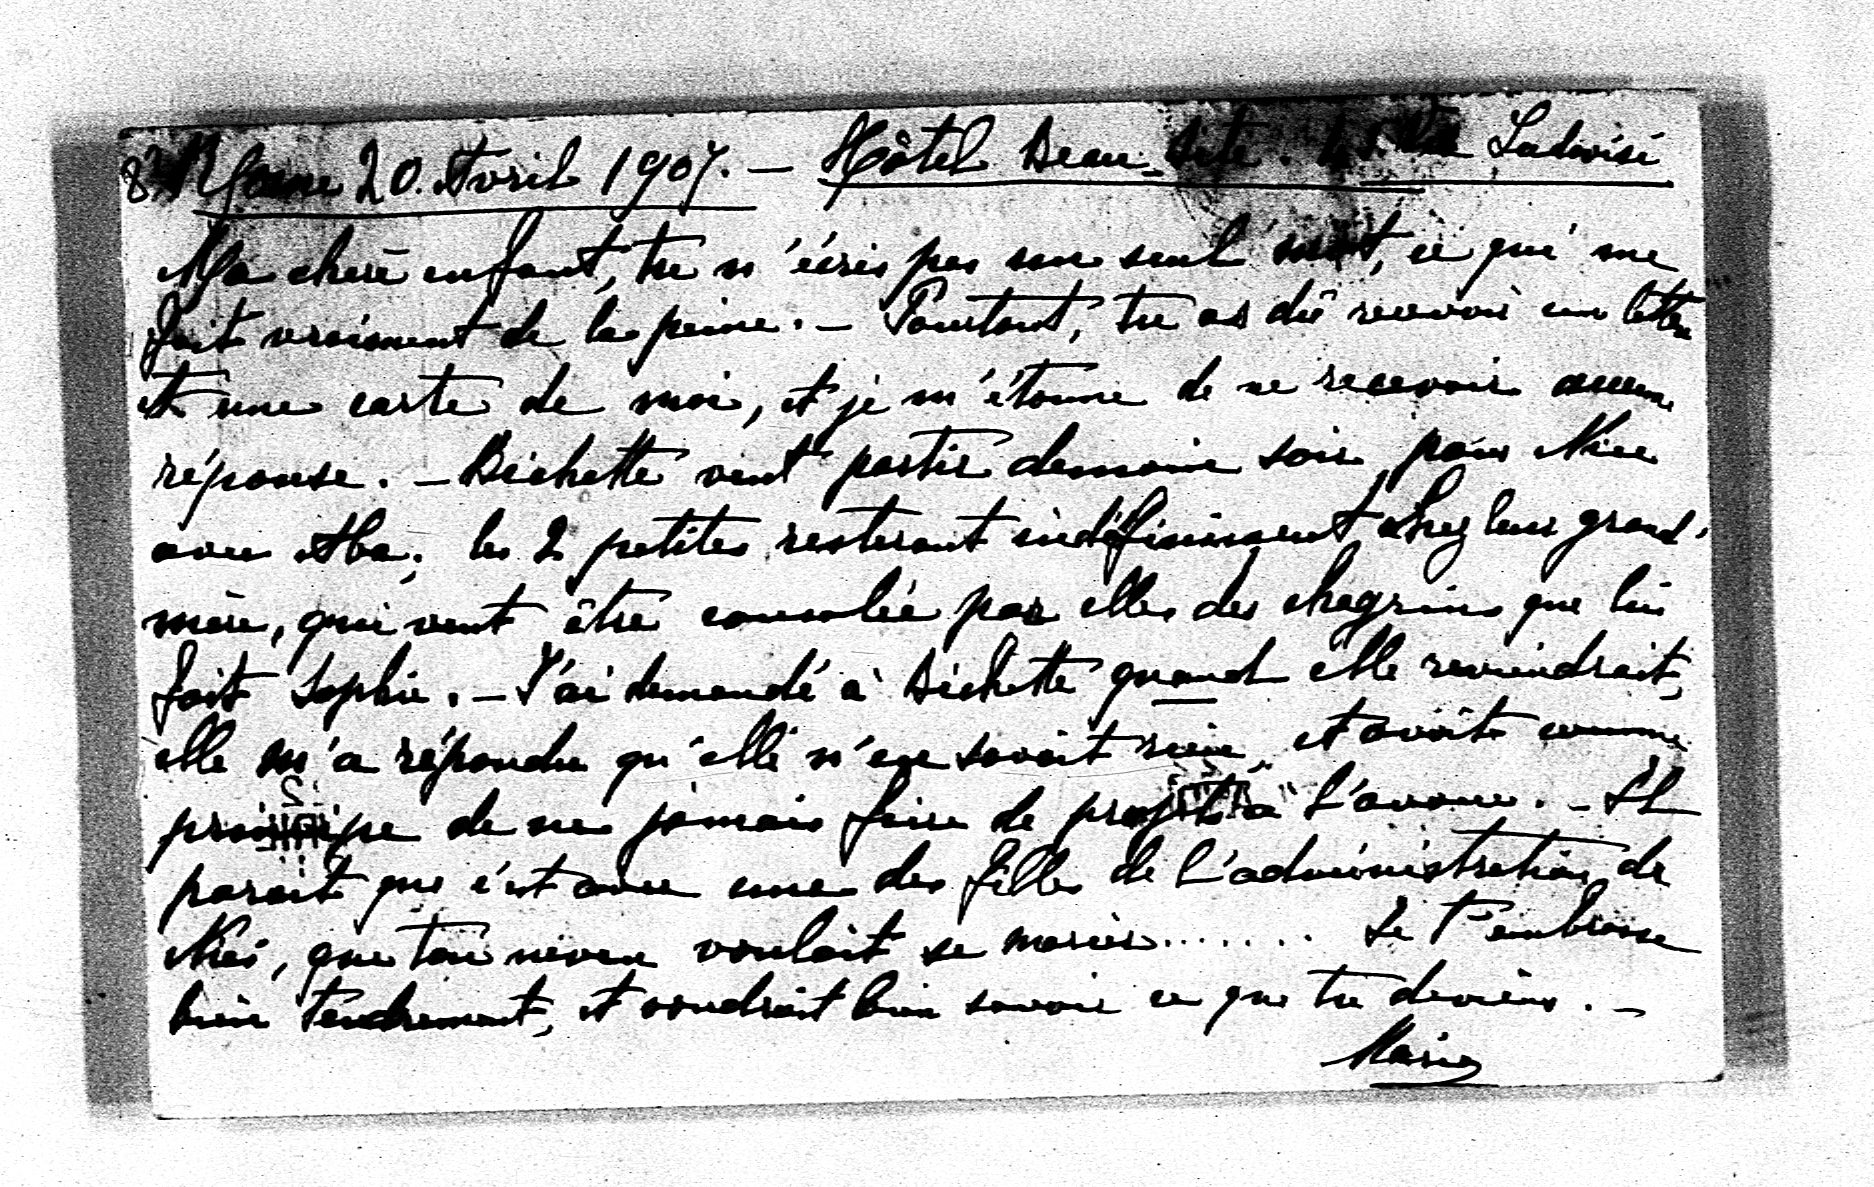 Rome 20. Avril 1907. — Hôtel Beau-Site. 45. Via Ludovisi
Ma chère enfant, tu n'écris pas un seul mot, ce qui me
fait vraiment de la peine. — Pourtant, tu as dû recevoir une lettre
et une carte de moi, et je m'étonne de ne recevoir aucune
réponse. — Bichette veut partir demain soir pour Nice
avec Aba; les 2 petites resteront indéfiniment chez leur grand'
mère, qui veut être consolée par elles des chagrins que lui
fait Sophie. — J'ai demandé à Bichette quand elle reviendrait,
elle m'a répondu qu'elle n'en savait rien, et avait comme
principe de ne jamais faire de projets à l'avance. — Il
parait que c'est avec une des filles de l'administration de
Nice, que ton neveu voulait se marier....... Je t'embrasse
bien tendrement, et voudrait bien savoir ce que tu deviens. —
Marie